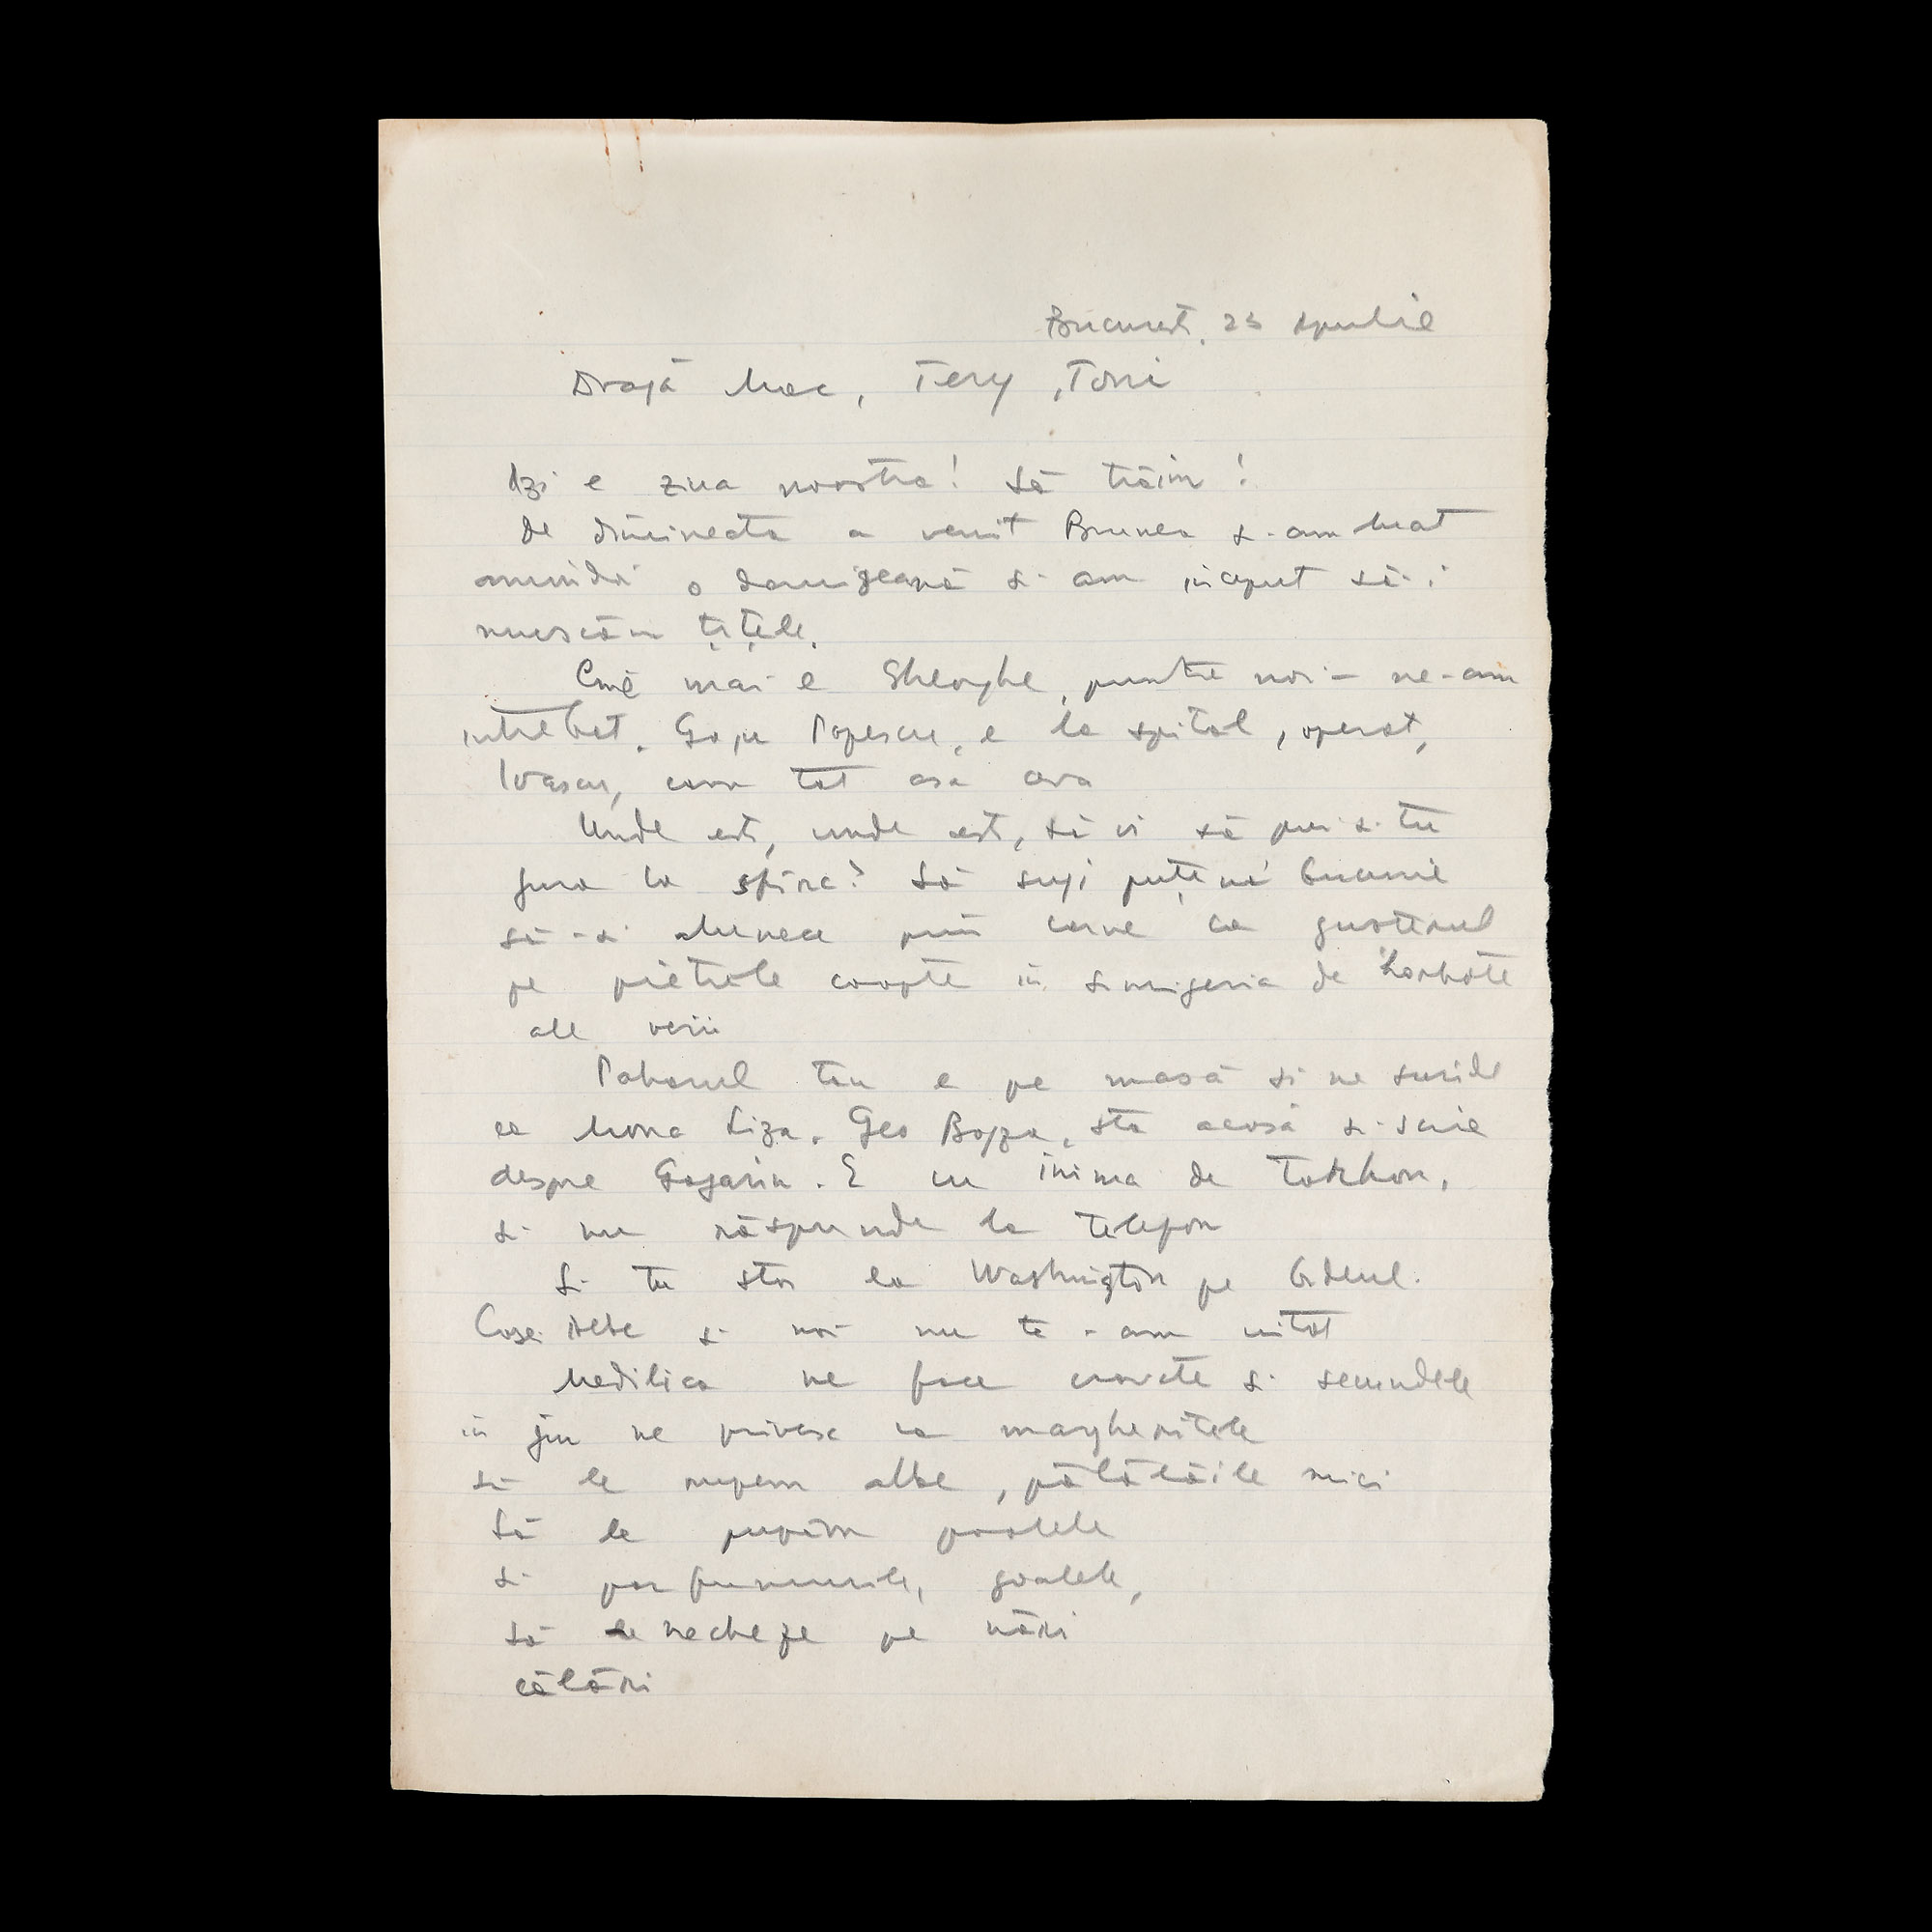 Bucureșt, 23 Aprilie
Dragă Mac, Tery, Toni
Azi e ziua noastra! Să trăim!
De dimineata a venit Brunea și-am luat
amindoi o damigeană și am inceput să-i
muscăm țițele.
Cine mai e Gheorghe, printre noi – ne-am
intrebat. Gogu Popescu, e la spital, operat,
Ivascu, cam tot asa ora
Unde esti, unde esti, să vi să pui si tu
gura la sfirc? Să sugi puțină bucurie
să-și alunece prin carne ca gusterul
pe pietrele coapte in singeria de
ale verii
Paharul tau e pe masă și ne suride
ca Mona Liza. Geo Bogza, sta acasă si scrie
despre Gagarin. E cu inima de
si nu răspunde la telefon
Si tu stai la Washington pe
si noi nu te-am uitat
ne face cravate si secundele
in jur ne privesc ca margheritele
să le rupem albe, pălălăile mici
Să le pupăm poalele
si parfumurile, goalele,
să necheze pe nări
călări